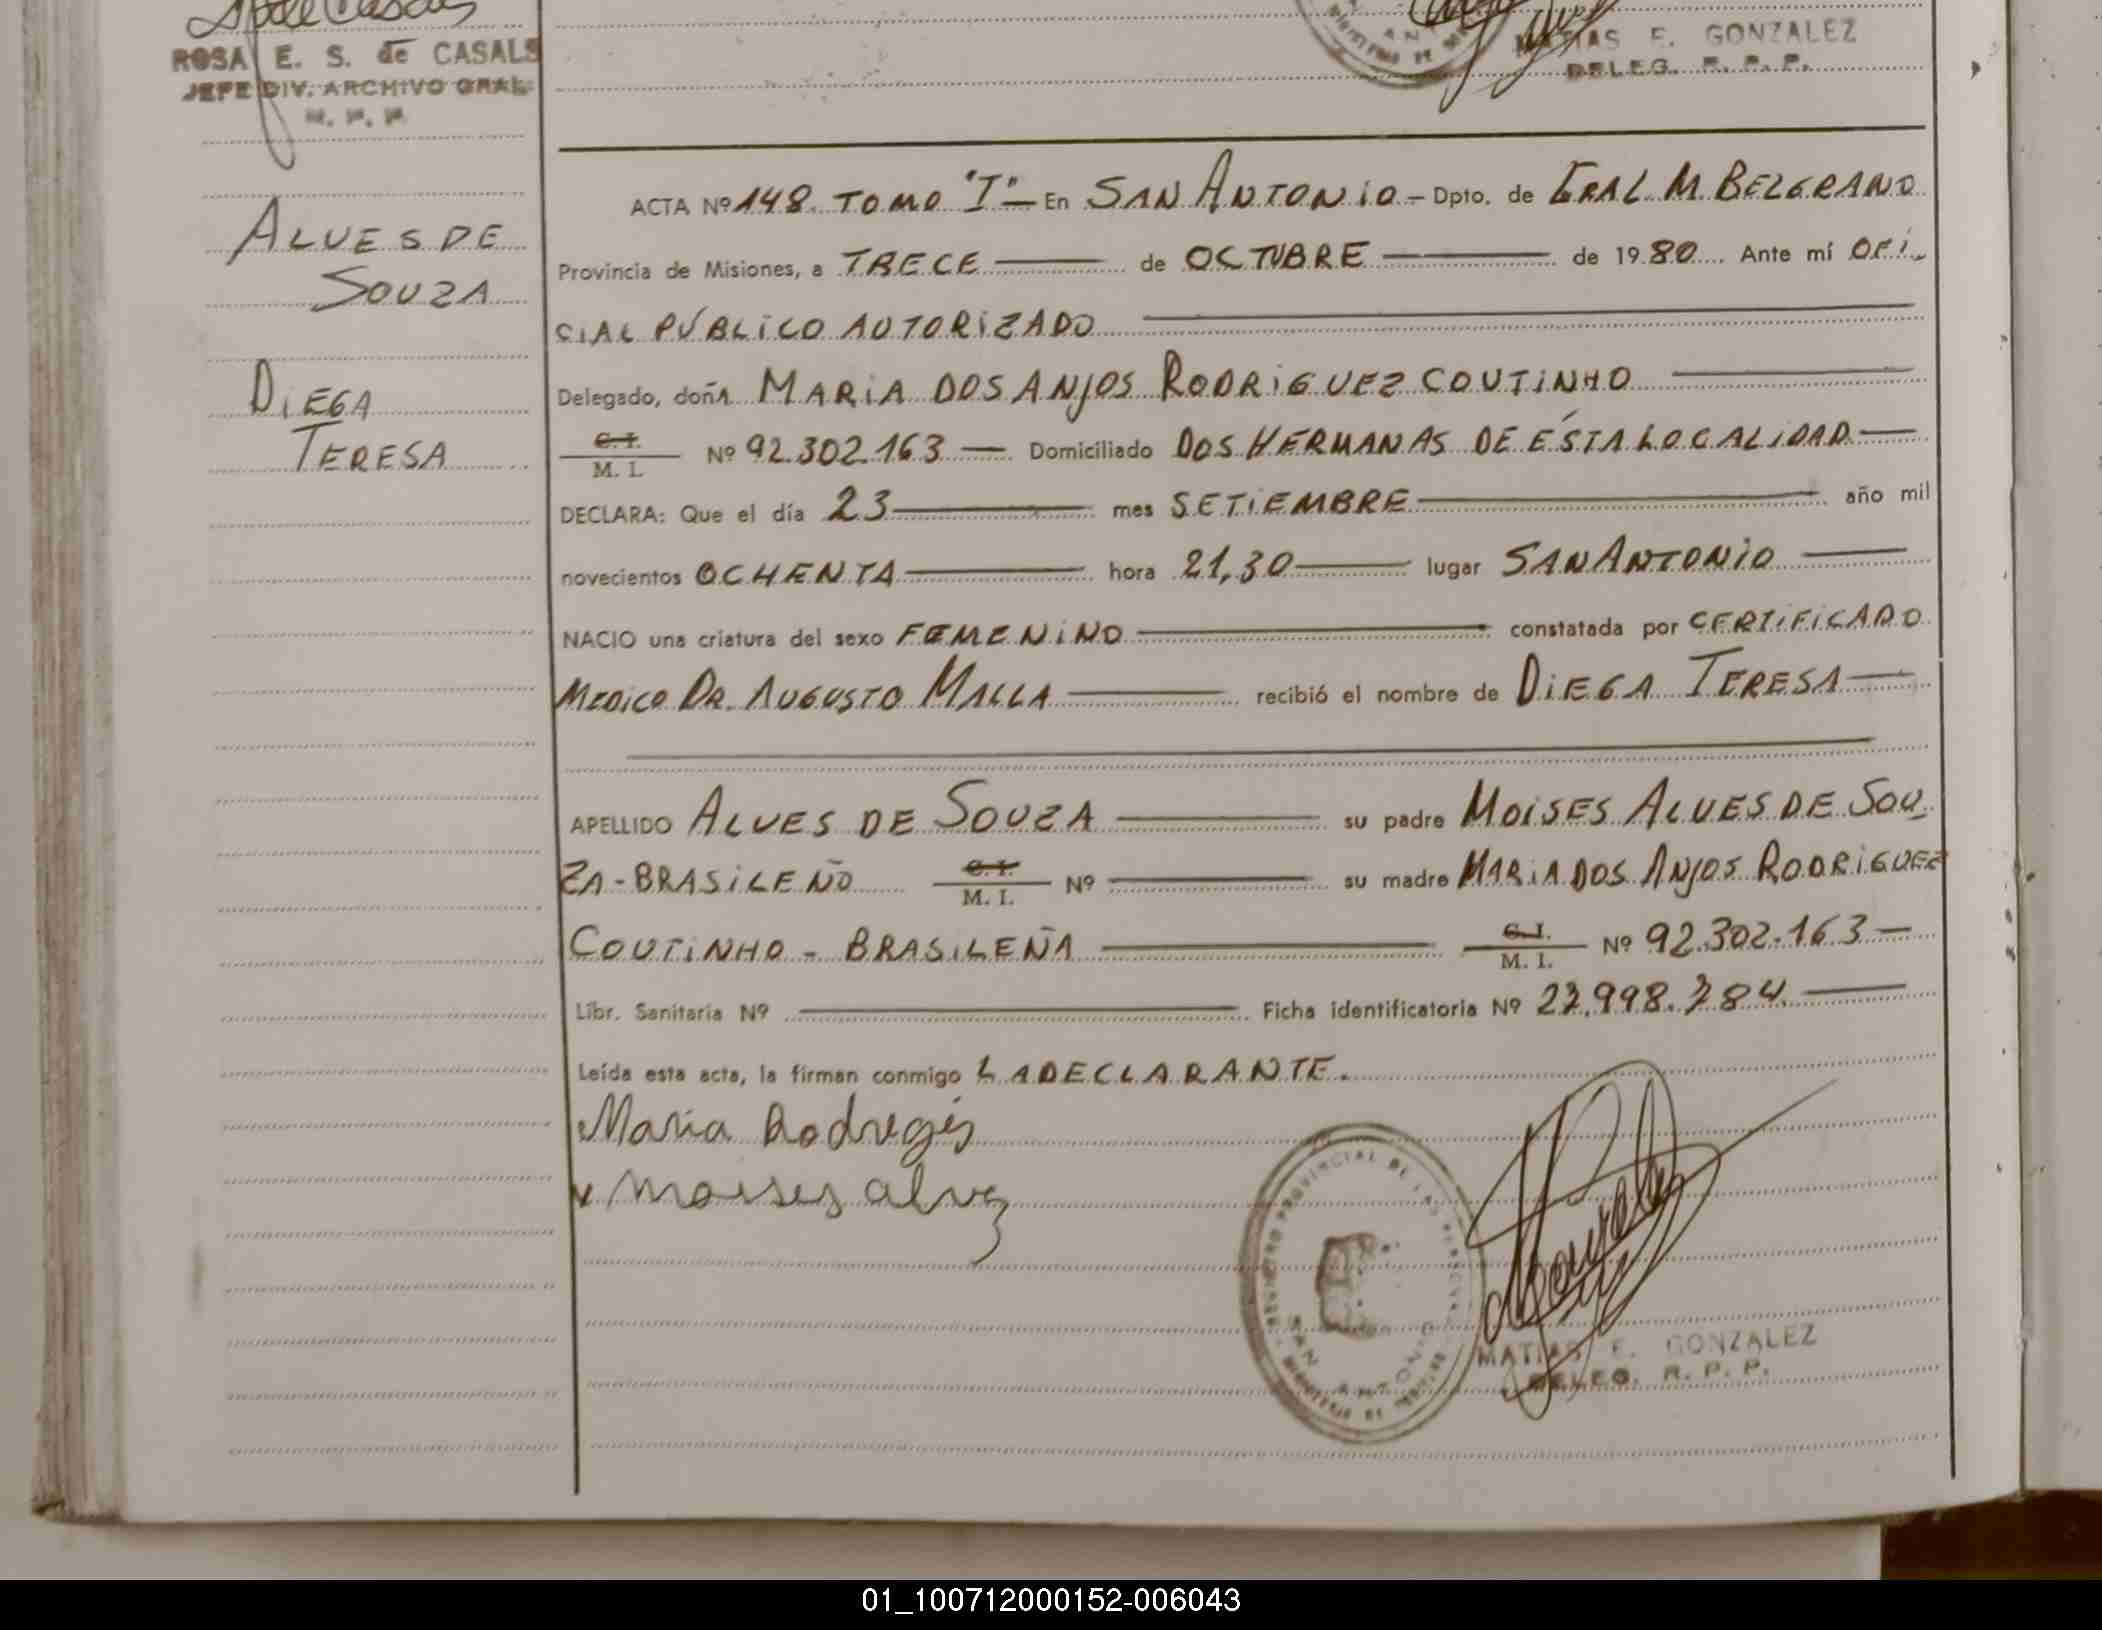 ROSA E. S. de CASALS
JEFE DIV. ARCHIVO GRAL.
MATIAS E. GONZALEZ
DELEG. R. P. P.
ALVES DE
SOUZA
DIEGA
TERESA
ACTA Nº 148. TOMO "I" — En SAN ANTONIO — Dpto. de GRAL M. BELGRANO
Provincia de Misiones, a TRECE — de OCTUBRE — de 1980. Ante mí OFI-
CIAL PÚBLICO AUTORIZADO —
Delegado, doña MARIA DOS ANJOS RODRIGUEZ COUTINHO —
C. I. / M. I. Nº 92.302.163 — Domiciliado DOS HERMANAS DE ÉSTA LOCALIDAD —
DECLARA: Que el día 23 — mes SETIEMBRE — año mil
novecientos OCHENTA — hora 21,30 — lugar SAN ANTONIO —
NACIO una criatura del sexo FEMENINO — constatada por CERTIFICADO
MEDICO DR. AUGUSTO MALLA — recibió el nombre de DIEGA TERESA —
APELLIDO ALVES DE SOUZA — su padre MOISES ALVES DE SOU-
ZA - BRASILEÑO C. I. / M. I. Nº — su madre MARIA DOS ANJOS RODRIGUEZ
COUTINHO - BRASILEÑA — C. I. / M. I. Nº 92.302.163 —
Libr. Sanitaria Nº — Ficha identificatoria Nº 27.998.784 —
Leída esta acta, la firman conmigo LA DECLARANTE.
Maria Rodregês
moises alves
REGISTRO PROVINCIAL DE LAS PERSONAS
SAN ANTONIO
MINISTERIO DE GOBIERNO
MATIAS E. GONZALEZ
DELEG. R. P. P.
01_100712000152-006043